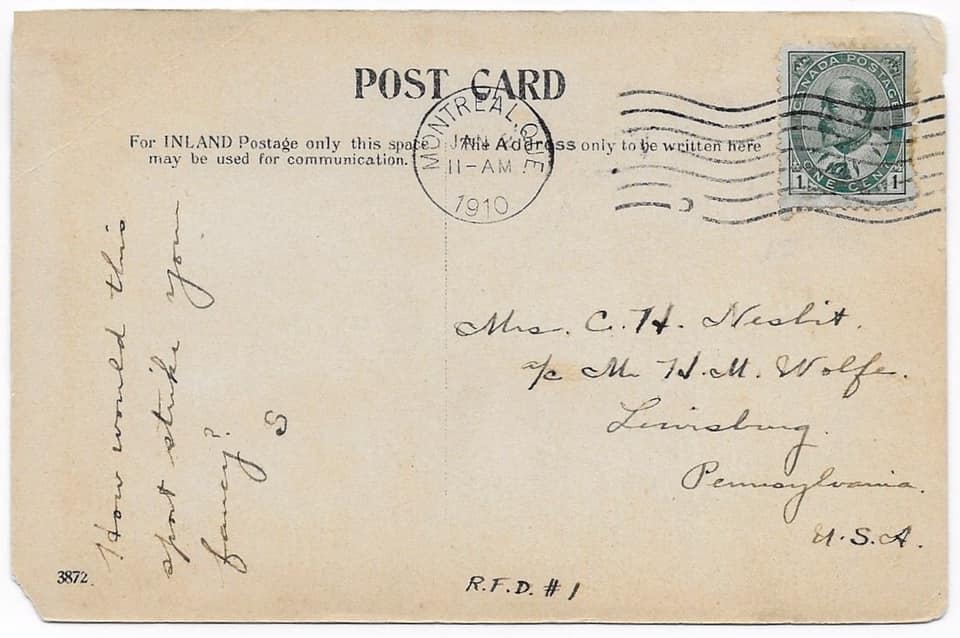 POST CARD
For INLAND Postage only this space
may be used for communication.
The Address only to be written here
MONTREAL, QUE.
JAN
11-AM
1910
CANADA POSTAGE
1 ONE CENT 1
How would this
spot strike your
fancy?
S
Mrs. C. H. Nesbit.
c/o Mr H. M. Wolfe.
Lewisburg.
Pennsylvania.
U. S. A.
R.F.D. #1
3872